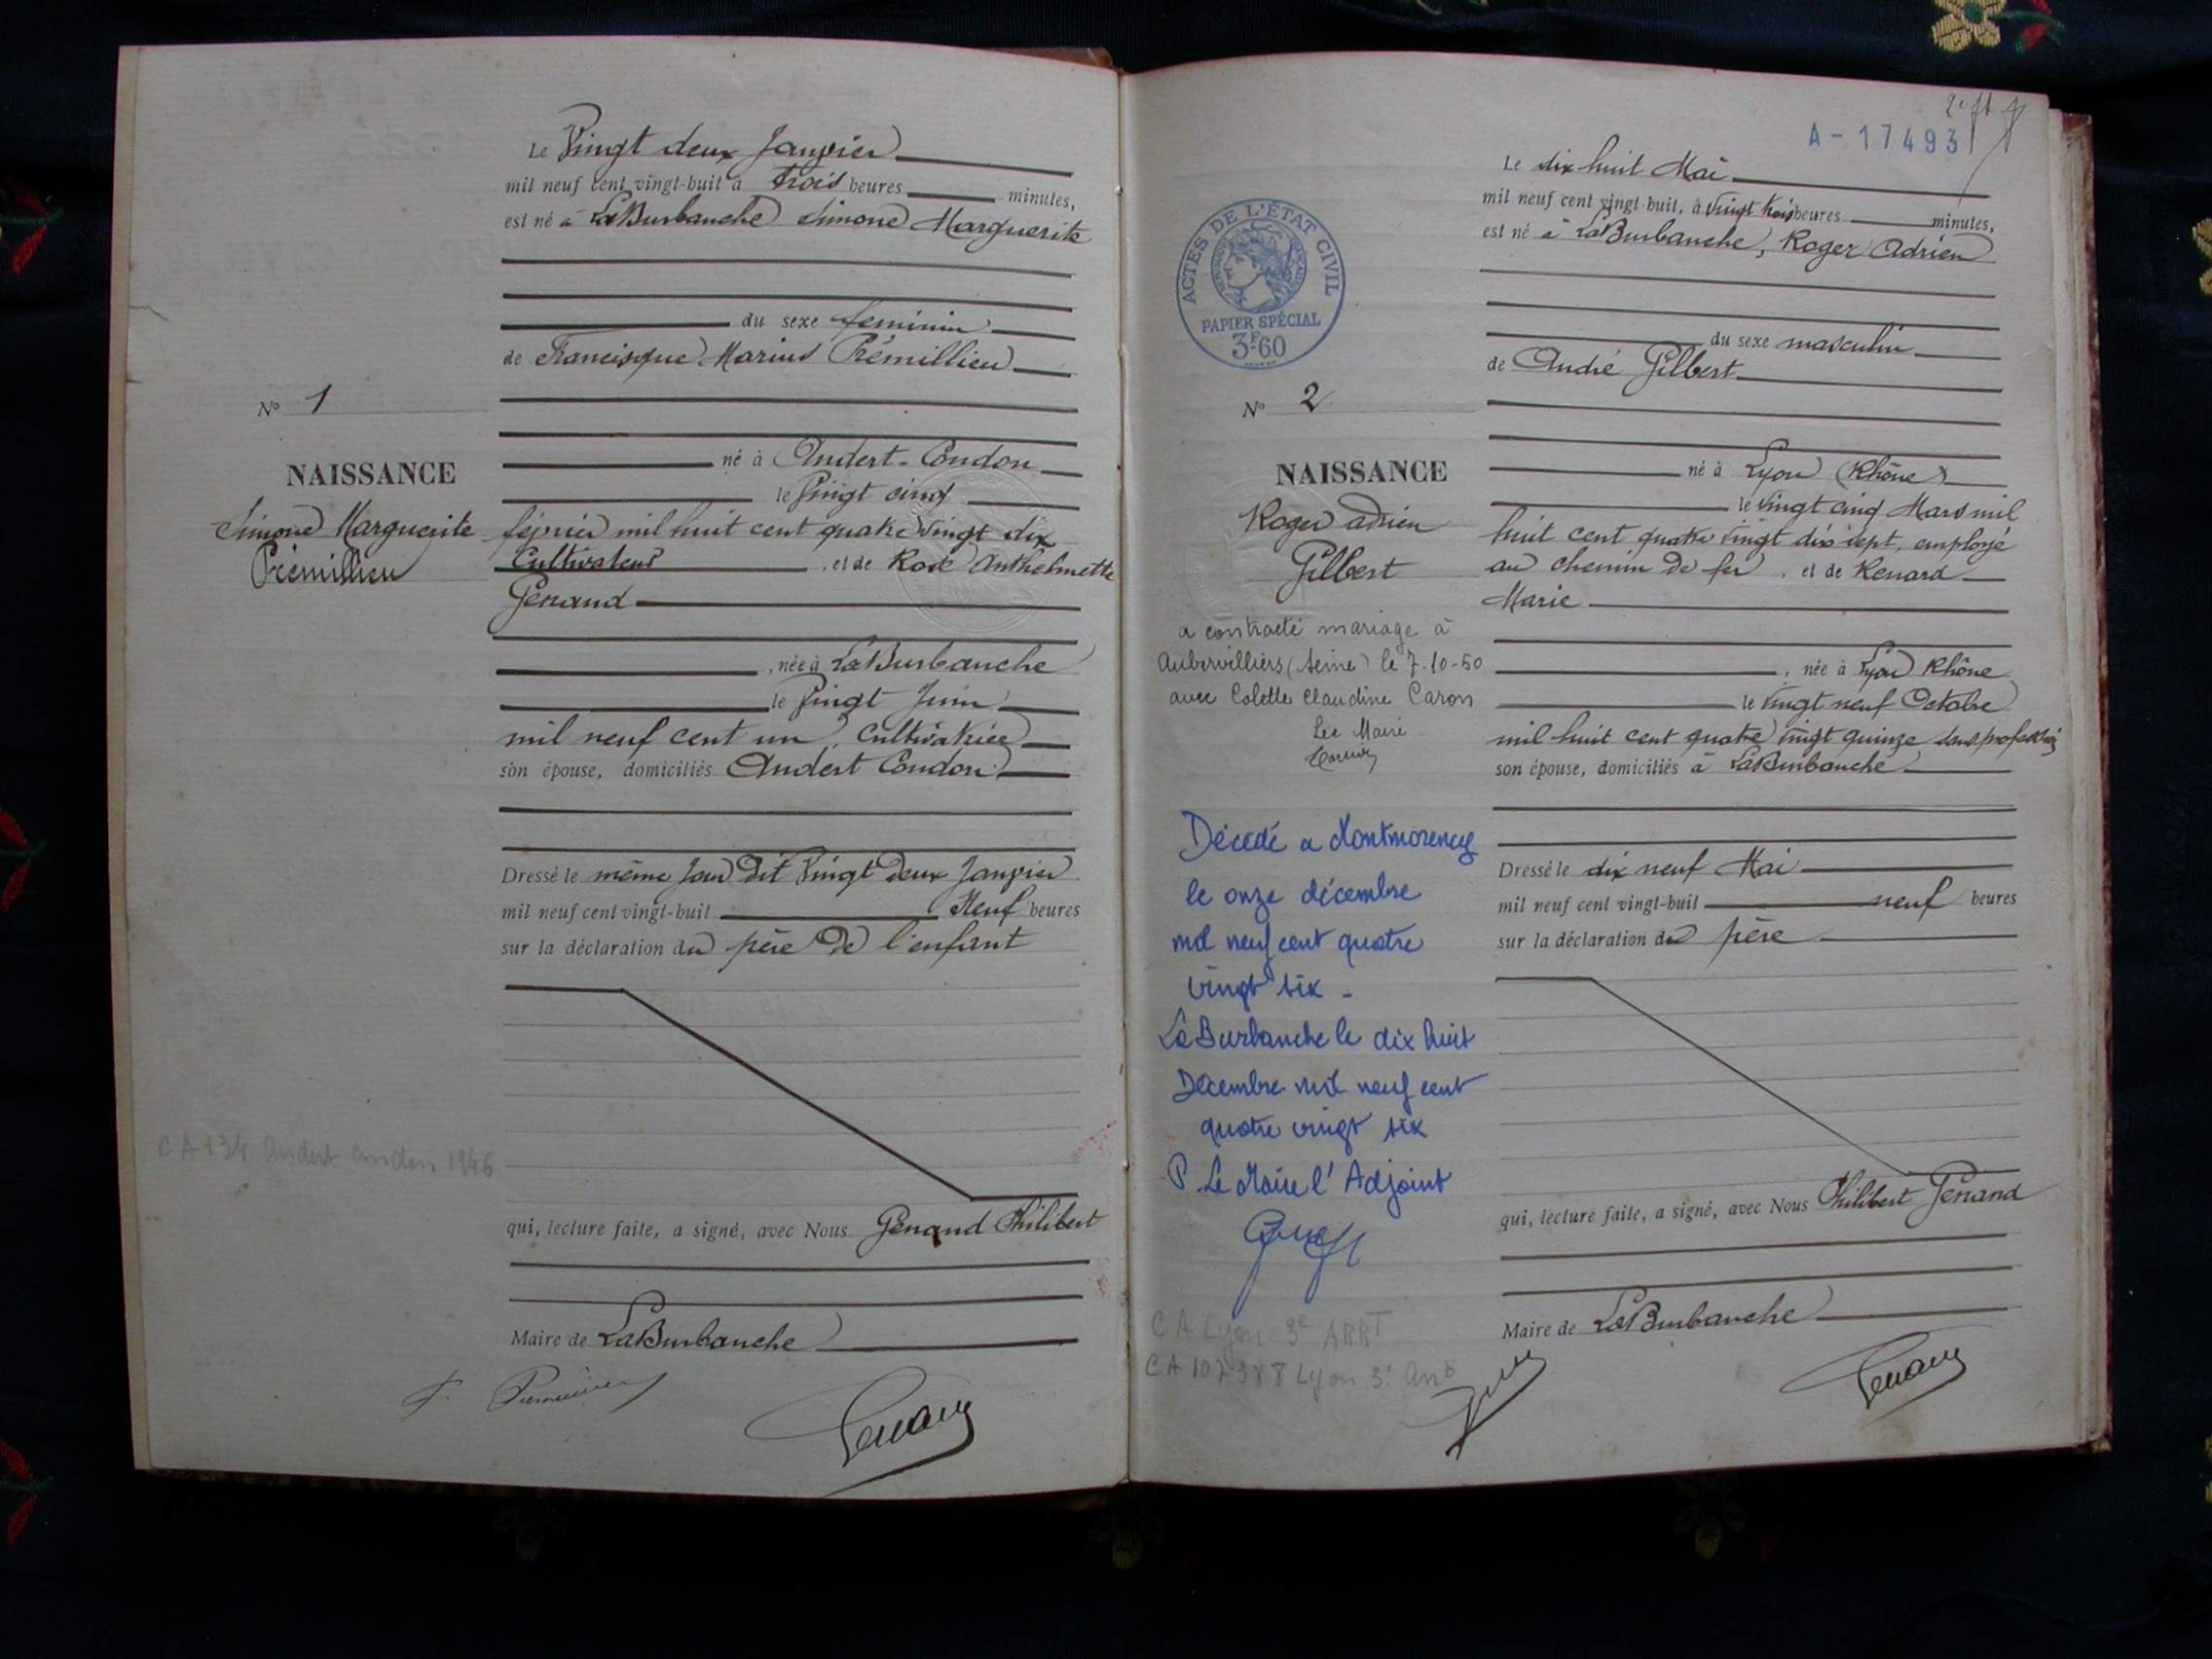 Le Vingt deux Janvier
mil neuf cent vingt-huit à trois heures minutes,
est né à LaBurbanche Simone Marguerite
du sexe feminin
de Francisque Marius Prémillieu
né à Andert-Condon
le Vingt cinq
février mil huit cent quatre vingt dix
Cultivateur, et de Rose Anthelmette
Genand
, née à LaBurbanche
le Vingt Juin
mil neuf cent un, Cultivatrice
son épouse, domiciliés Andert Condon
Dressé le même jour dit Vingt Deux Janvier
mil neuf cent vingt-huit Neuf heures
sur la déclaration du père De l'enfant
qui, lecture faite, a signé, avec Nous Genand Philibert
Maire de LaBurbanche
Nº 1
NAISSANCE
Simone Marguerite
Prémillieu
Andert Condon 1946
A-17493
Le dix huit Mai
mil neuf cent vingt-huit, à Vingt trois heures minutes,
est né à LaBurbanche, Roger Adrien
du sexe masculin
de André Gilbert
né à Lyon (Rhône)
le Vingt cinq Mars mil
huit cent quatre vingt dix sept, employé
au chemin De fer, et de Renard
Marie
, née à Lyon Rhône
le Vingt neuf Octobre
mil huit cent quatre vingt quinze sans profession
son épouse, domiciliés à LaBurbanche
Dressé le dix neuf Mai
mil neuf cent vingt-huit neuf heures
sur la déclaration du père
qui, lecture faite, a signé, avec Nous Philibert Genand
Maire de LaBurbanche
Genand
ACTES DE L'ÉTAT CIVIL
PAPIER SPÉCIAL
3F60
Nº 2
NAISSANCE
Roger Adrien
Gilbert
a contracté mariage à
Aubervilliers (Seine) le 7-10-50
avec Colette Claudine Caron
Le Maire
Décédé a Montmorency
le onze décembre
mil neuf cent quatre
vingt six -
La Burbanche le dix huit
Décembre mil neuf cent
quatre vingt six
P. Le Maire l'Adjoint
CA Lyon 3e ARRT
Lyon 3e Arrt